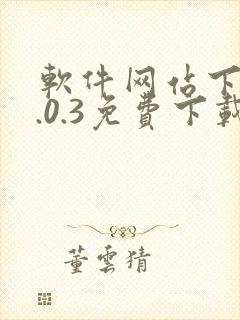 軟件网佔下
.0.3免費下載
董雲猜